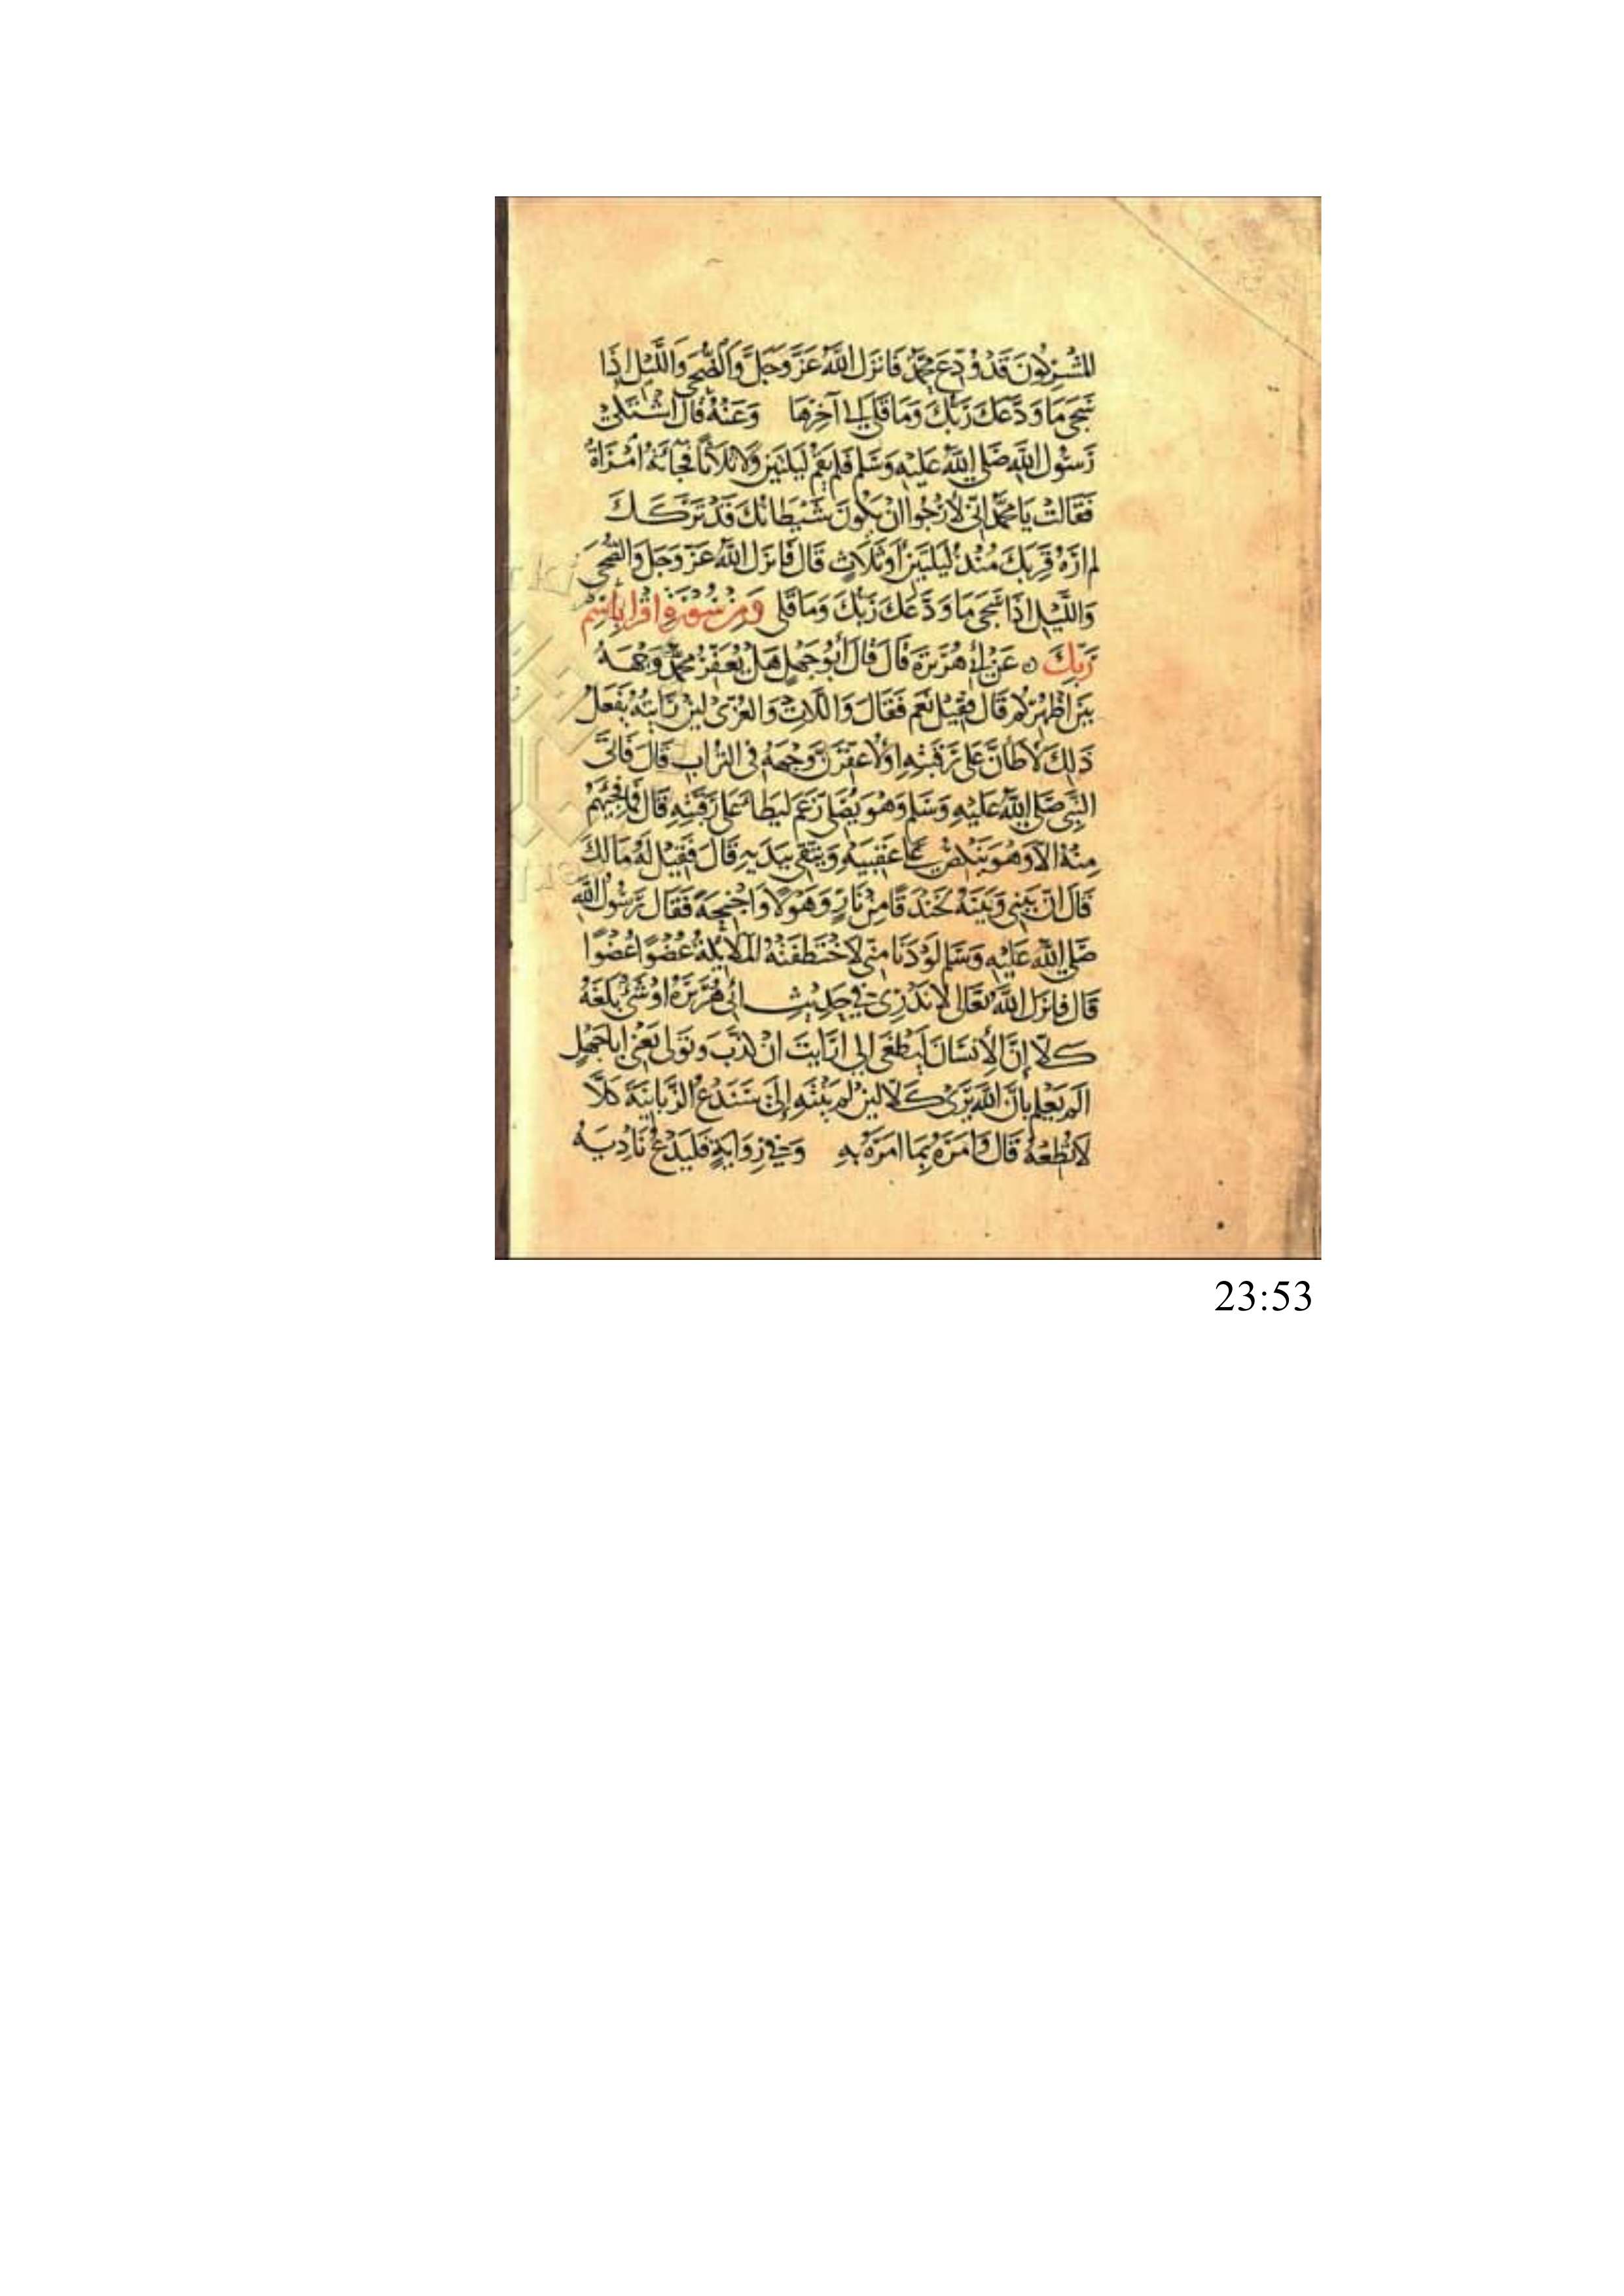 المشركون قد وُدِّعَ محمّد فانزل الله عزّ وجلّ والضحى والليل اذا
سجى ما ودّعك ربك وما قلى الى آخرها وعنه قال اشتكى
رسول الله صلى الله عليه وسلم فلم يقم ليلتين ولا ثلاثا فجائته امراة
فقالت يا محمّد انّى لارجوا ان يكون شيطانك قد تركك
لم ازه قربك منذ ليلتين او ثلاث قال فانزل الله عزّ وجل والضحى
والليل اذا سجى ما ودّعك ربك وما قلى ومن سورة اقرا باسم
ربك عن ابى هريرة قال قال أبو جهل هل يعفّر محمّد وجهه
بين اظهركم قال فقيل نعم فقال واللات والعزّى لئن رايته يفعل
ذلك لاطانّ على رقبته او لاعفّرنّ وجهه فى التراب قال فاتى
النبى صلى الله عليه وسلم وهو يصلى زعم ليطأ على رقبته قال فما فجئهم
منه الا وهو ينكص على عقبيه ويتقى بيديه قال فقيل له مالك
قال انّ بينى وبينه لخندقا من نار وهولا واجنحة فقال رسول الله
صلى الله عليه وسلم لو دنا منى لاختطفته الملائكة عضوا عضوا
قال فانزل الله تعالى لا ندرى فى حديث ابى هريرة او شئ بلغه
كلّا إنّ الأنسان ليطغى الى ارايت ان كذّب وتولى يعنى اباجهل
الم يعلم بانّ الله يرى كلا لئن لم ينته إلى سندع الزّبانية كلّا
لا تطعه قال وامره بما امره به وفى رواية فليدع ناديه
23:53